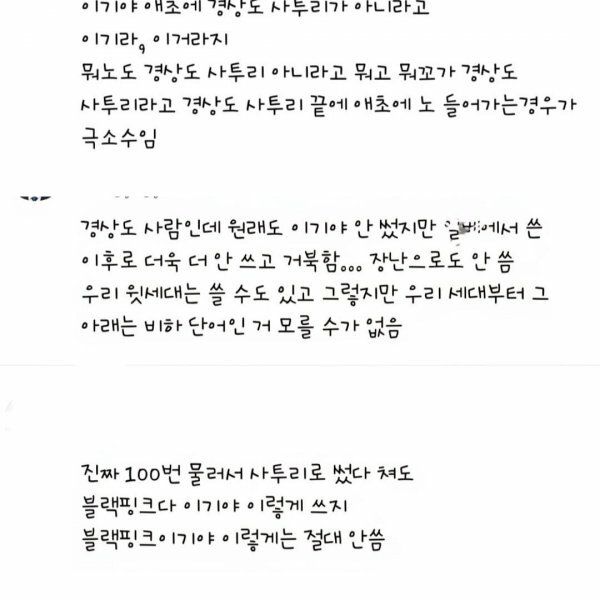 이기야 애초에 경상도 사투리가 아니라고
이기라, 이거라지
뭐노도 경상도 사투리 아니라고 뭐고 뭐꼬가 경상도
사투리라고 경상도 사투리 끝에 애초에 노 들어가는경우가
극소수임
경상도 사람인데 원래도 이기야 안 썼지만 일베에서 쓴
이후로 더욱 더 안 쓰고 거북함... 장난으로도 안 씀
우리 윗세대는 쓸 수도 있고 그렇지만 우리 세대부터 그
아래는 비하 단어인 거 모를 수가 없음
진짜 100번 물러서 사투리로 썼다 쳐도
블랙핑크다 이기야 이렇게 쓰지
블랙핑크이기야 이렇게는 절대 안씀